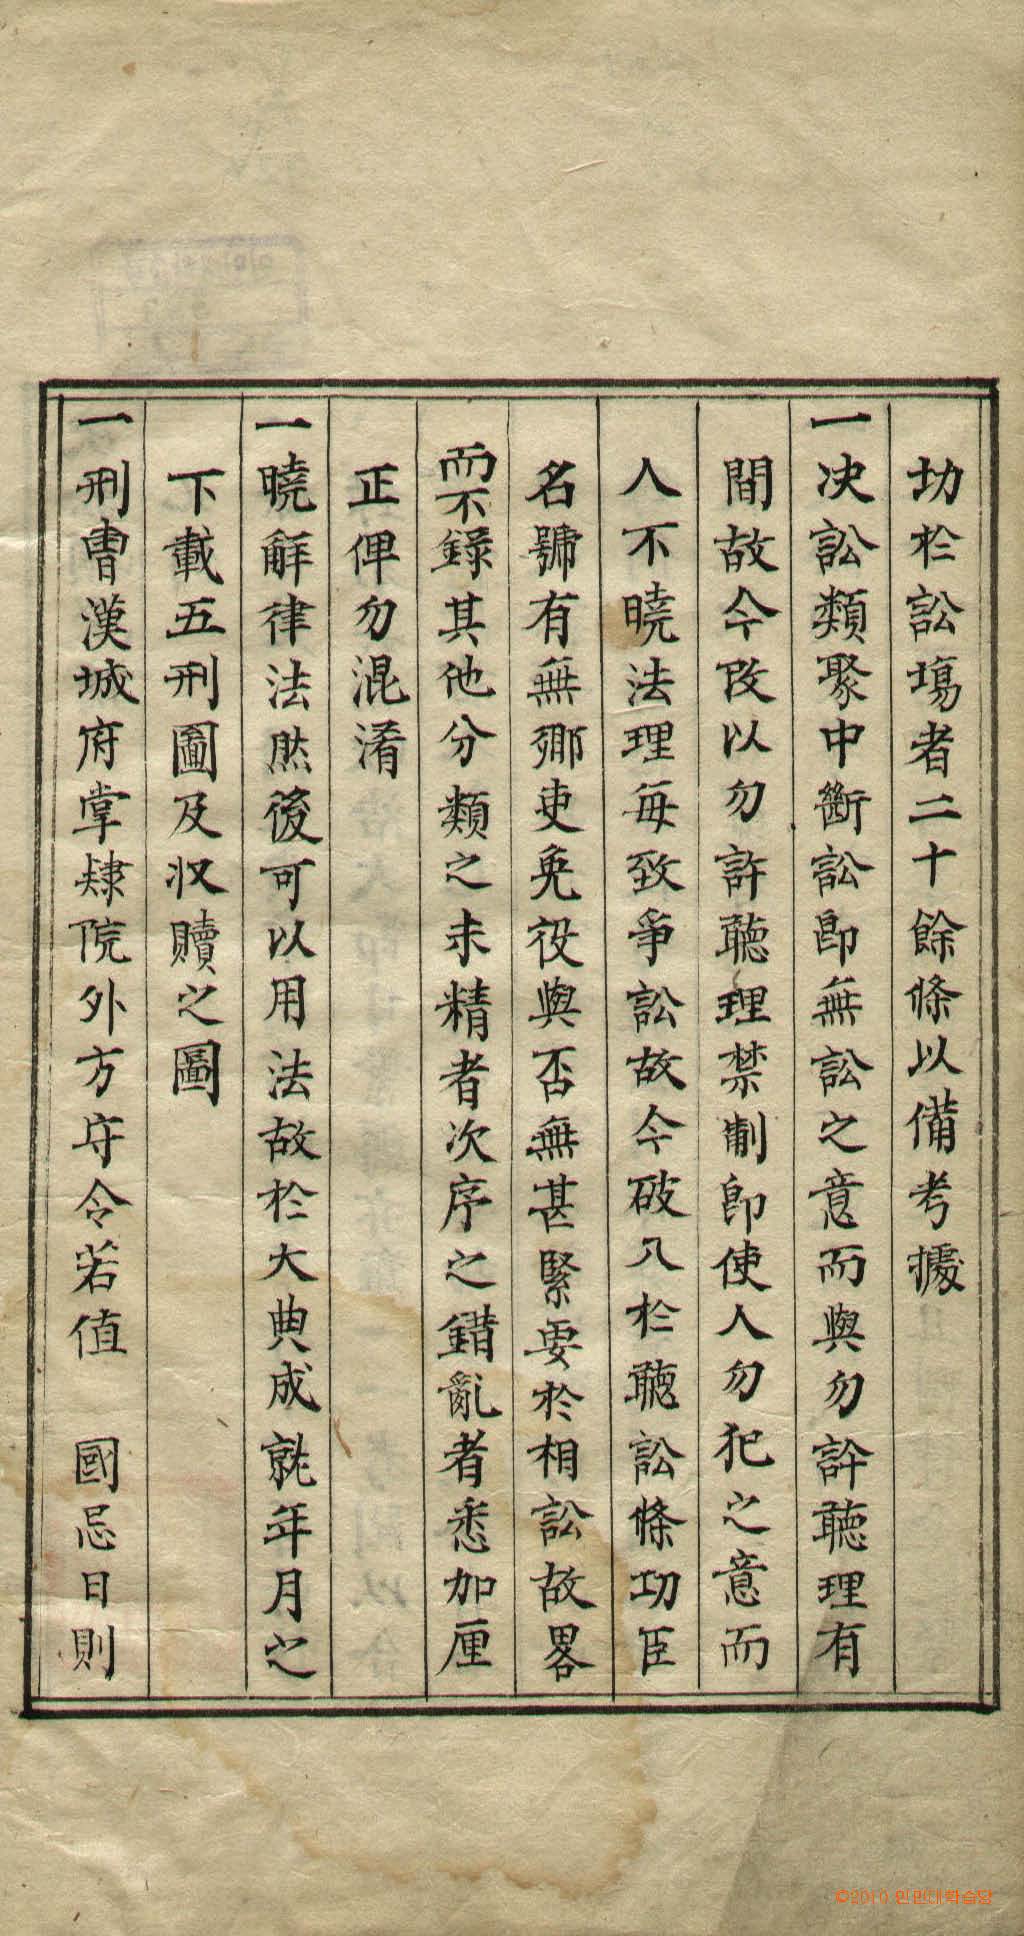 切於訟場者二十餘條以備考據
一決訟類聚中斷訟卽無訟之意而與勿許聽理有
間故今改以勿許聽理禁制卽使人勿犯之意而
人不曉法理每致爭訟故今破入於聽訟條功臣
名號有無鄕吏免役與否無甚緊要於相訟故畧
而不錄其他分類之未精者次序之錯亂者悉加厘
正俾勿混淆
一曉解律法然後可以用法故於大典成就年月之
下載五刑圖及收贖之圖
一刑曺漢城府掌隷院外方守令若值 國忌日則
©2010 인민대학습당